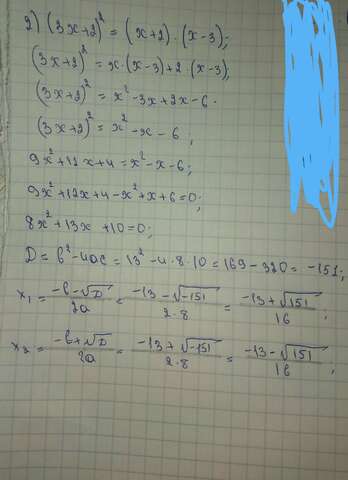 2) (3x+2)² = (x+2)·(x-3);
(3x+2)² = x·(x-3)+2·(x-3);
(3x+2)² = x²-3x+2x-6.
(3x+2)² = x²-x-6;
9x²+12x+4=x²-x-6;
9x²+12x+4-x²+x+6=0;
8x²+13x+10=0;
D = b²-4ac = 13²-4·8·10 = 169-320 = -151;
x₁ = (-b-√D)/2a = (-13-√-151)/2·8 = (-13+√151)/16;
x₂ = (-b+√D)/2a = (-13+√-151)/2·8 = (-13-√151)/16;